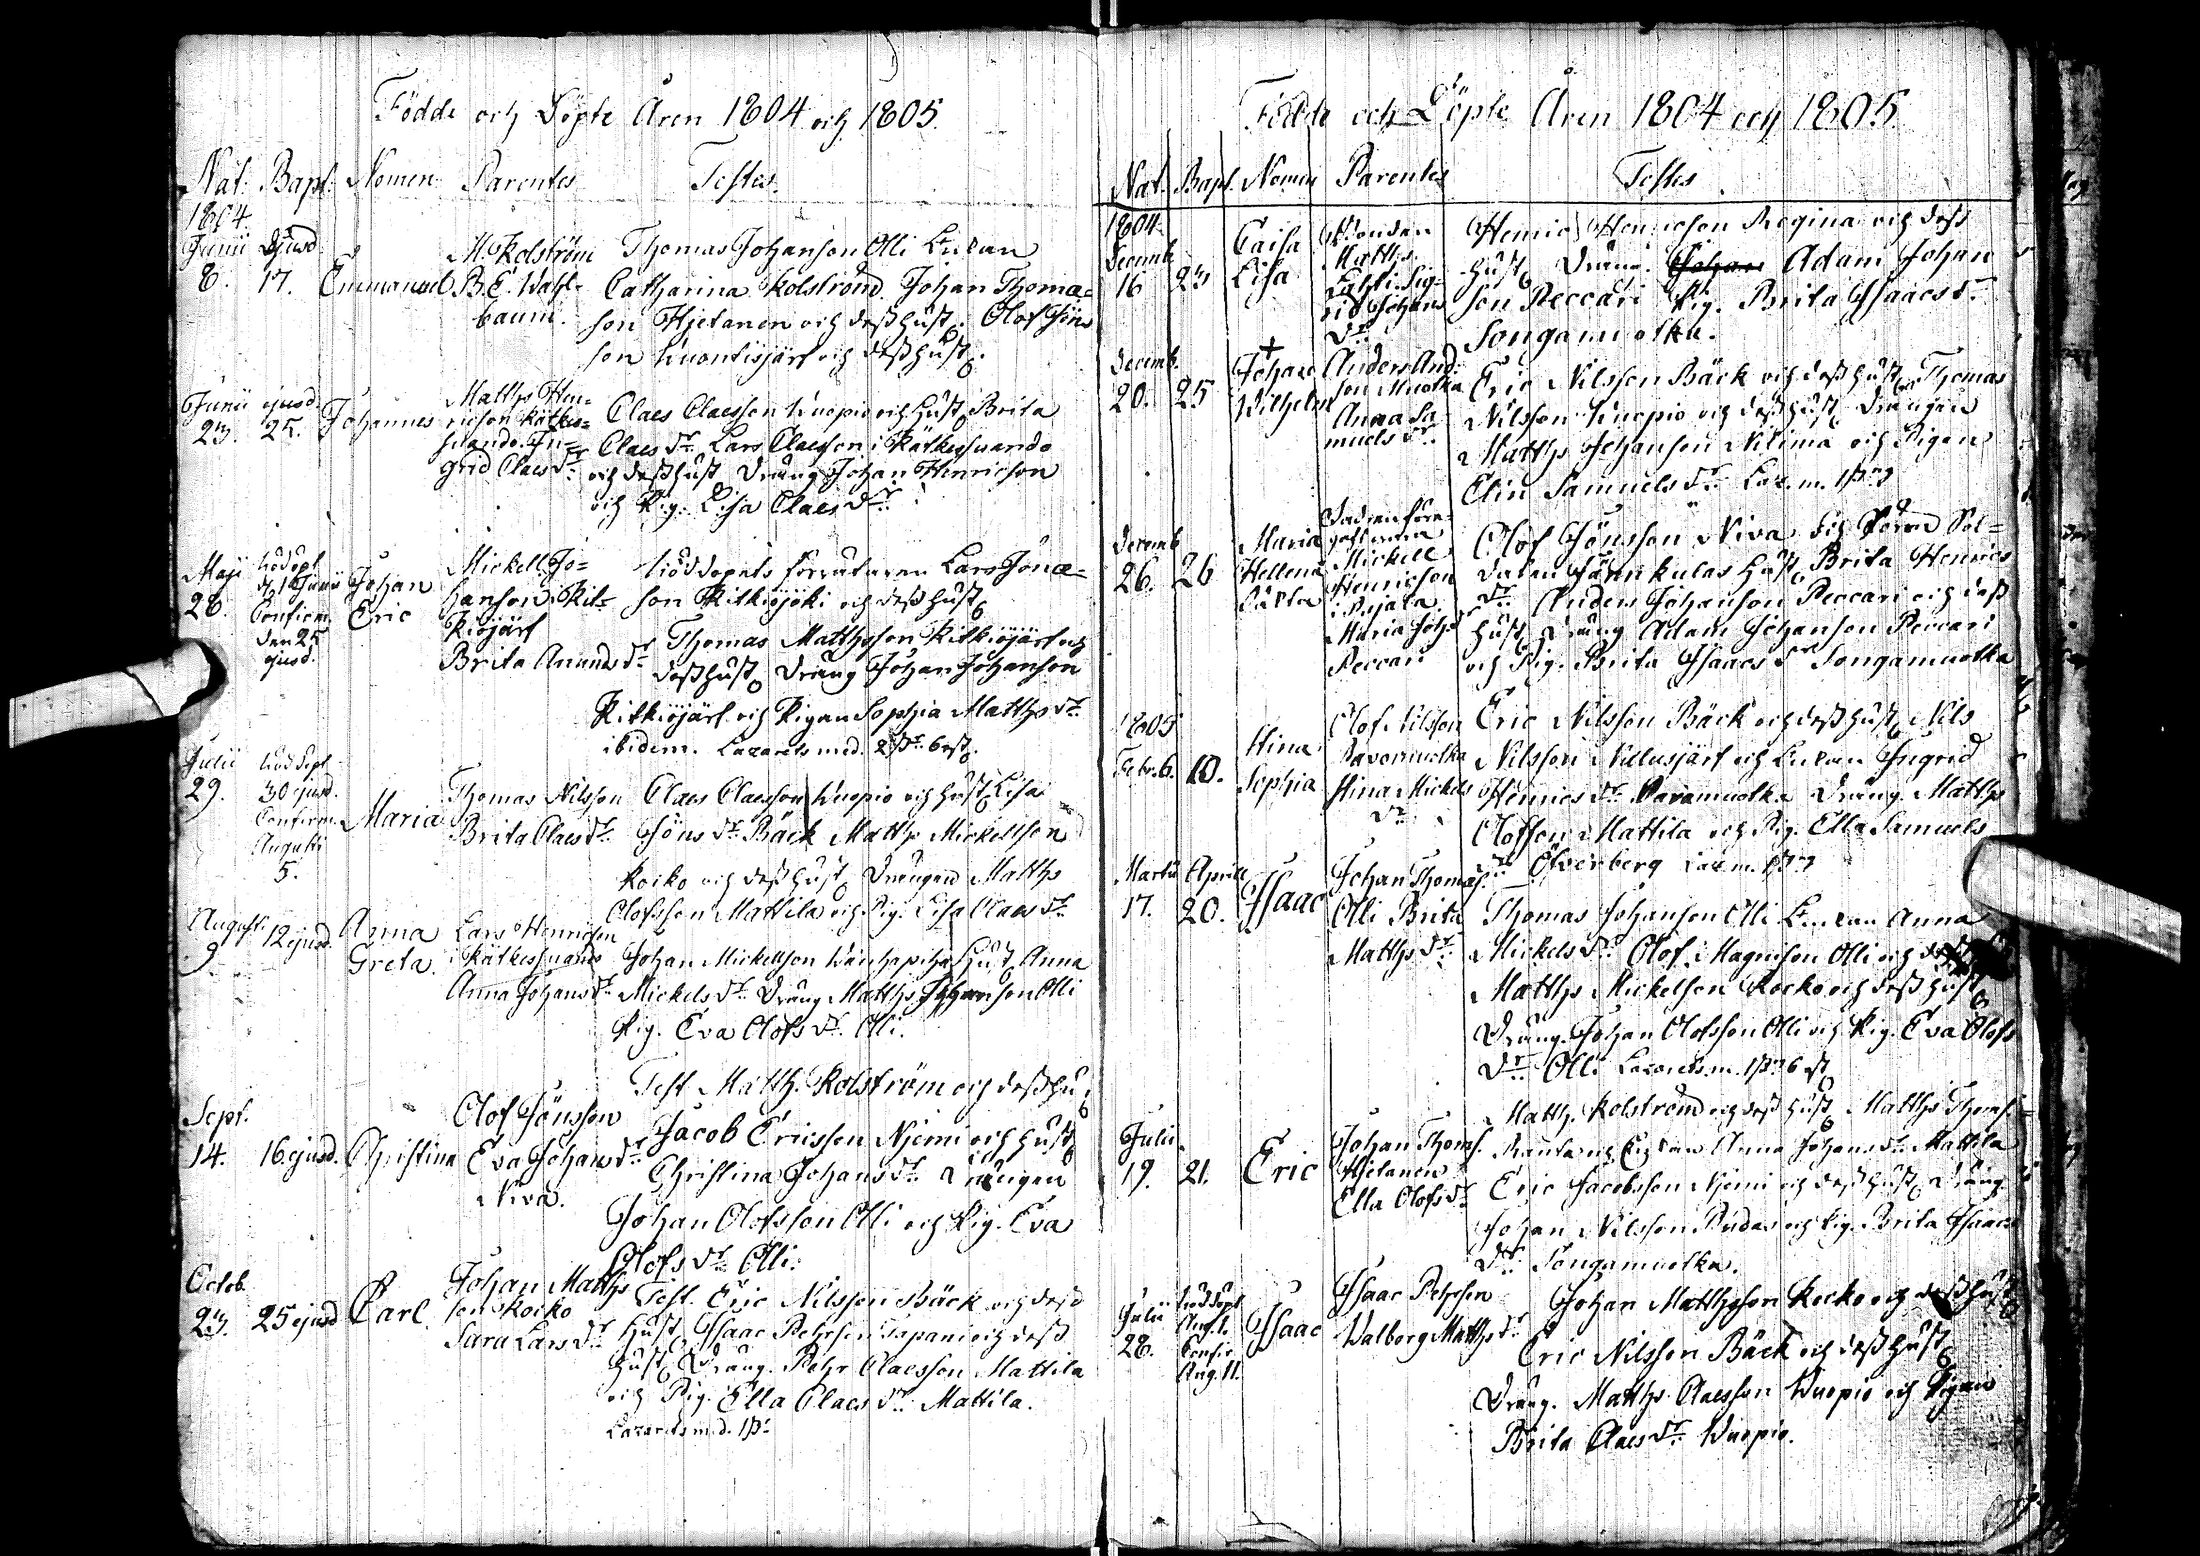 Födde och Döpte Åren 1804 och 1805.
Nat. Bapt. Nomen Parentes Testes.
1804.
Junii ejusd.
8. 17. Emmanuel
M. Kolström
B. E. Wahl=
baum.
Thomas Johanson Olli Enkan
Catharina Kolström Johan Thoma=
son Hietanen och dess hust. Olof Jöns
son Kuontisjärf och dess hust.
Junii ejusd.
23. 25. Johannes
Matths Hen=
ricson Kätkes=
suando. In=
grid Claes dr.
Claes Claesson Kuopio och Hust. Brita
Claes dr. Lars Claesson i Kätkessuando
och dess hust. Dräng Johan Henricson
och Pig. Lisa Claes dr.
Maji nöddöpt
28. d. 1 Junii
Confirm.
den 25
ejusd.
Johan
Eric
Mickell Jo=
hanson i Kit=
kiöjärf
Brita Amunds dr.
Nöddopets förrättaren Lars Jöna=
son Kitkiöjoki och dess hust.
Thomas Matthsson Kitkiöjärf och
dess hust. Dräng Johan Johanson
Kitkiöjärf och Pigan Sophia Matths dr.
ibidem. Lazarets med. 2 sk. 6 rst.
Julii nöddöpt
29. 30 ejusd.
Confirm.
Augusti
5.
Maria
Thomas Nilsson
Brita Claes dr.
Claes Claesson Kuopio och hust. Lisa
Jöns dr. Bäck Matths Mickellson
Kocko och dess hust. Drängen Matths
Olofsson Mattila och Pig. Lisa Claes dr.
August.
9 12 ejusd.
Anna
Greta.
Lars Henricson
Kätkessuando
Anna Johans dr.
Johan Mickellson Hust. Anna
Mickels dr. Dräng Matths Johanson Olli
Pig. Eva Olofs dr. Olli.
Sept.
14. 16 ejusd. Christina
Olof Jönsson
Eva Johans dr.
Niva.
Test. Matth. Kolström och dess hu.
Jacob Ericsson Njemi och hust.
Christina Johans dr. Drängen
Johan Olofsson Olli och Pig. Eva
Olofs dr. Olli.
Octob.
23. 25 ejusd. Carl
Johan Matths
son Kocko
Sara Lars dr.
Test. Eric Nilsson Bäck och dess
hust. Isaac Pehrson Tapani och dess
hust. Dräng. Pehr Claesson Mattila
och Pig. Ella Claes dr. Mattila.
Lazarets med. 1 sk.
Födde och Döpte Åren 1804 och 1805.
Nat. Bapt. Nomen Parentes Testes
1804.
Decemb.
16 23
Caisa
Lisa
Bonden
Matths
Lahti Sig=
rid Johans
dr.
Henric Henricson Regina och dess
hust. Dräng. Johan Adam Johan
son Peccari Pig. Brita Isaacs dr.
Songamuotka.
Decemb.
20. 25
Johan
Wilhelm
Anders And.
son Muotka
Anna Sa
muels dr.
Eric Nilsson Bäck och dess hust. Thomas
Nilsson Kuopio och dess hust. Drängen
Matths Johanson Nikima och Pigan
Elin Samuels dr. Laz. m. 1 sk.
Decemb
26. 26
Maria
Hellena
Mickell
Henricson
Maria Johs dr
Peccari
Olof Jönsson Niva
hust. Brita Henrics
dr. Anders Johanson Peccari och dess
hust. Dräng Adam Johanson Peccari
och Pig. Brita Isaacs dr. Songamuotka
1805
Febr. 6. 10.
Stina
Sophia
Olof Nilsson
Parvomuotka
Stina Mickels
dr.
Eric Nilsson Bäck och dess hust. Nils
Nilsson Nullusjärf och Enkan Ingrid
Henrics dr. Parvomuotka Dräng. Matths
Olofsson Mattila och Pig. Ella Samuels
dr. Öfverberg Laz. m. 1 sk.
Martii Aprill
17. 20.
Isaac
Johan Thomas.
Olli Brita
Matths dr.
Thomas Johanson Olli Enkan Anna
Mickels dr. Olof Magnison Olli och dess
Matths Mickelson Kocko och dess hust
Dräng. Johan Olofsson Olli och Pig. Eva Olofs
dr. Olli Lazarets m. 1 sk. 6 rst.
Julii
19. 21.
Eric
Johan Thoms.
Hietanen
Ella Olofs dr
Matth. Kolström och dess hust. Matths Thoms.
Rauta och Enkan Anna Johans dr. Mattila
Eric Jacobsson Njemi och dess hust. Dräng.
Johan Nilsson Rudas och Pig. Brita Isaacs
dr. Songamuotka.
Julii nöddöpt
28. Aug. 1.
Confir.
Aug. 11.
Isaac
Isaac Pehrson
Walborg Matths dr
Johan Matthsson Kocko och dess hust.
Eric Nilsson Bäck och dess hust
Dräng. Matths Claesson Kuopio och Pigan
Brita Claes dr. Kuopio.